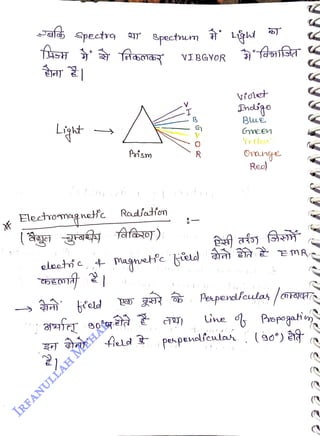 जबकि Spectra या Spectrum में Light का
प्रिज्म में से निकलकर VIBGYOR में विभाजित
होना है|
Light → Prism
V
I
B
G
Y
O
R
Violet
Indigo
Blue
Green
Yellow
Orange
Red
* Electromagnetic Radiation :-
(वैद्युत चुम्बकीय विकिरण)
ऐसी तरंग जिसमें
electric + magnetic field दोनो होते है EMR
कहलाती है|
→ दोनो field एक दूसरे के Perpendicular / लम्बवत
अर्थात् 90° पर होते है तथा Line of Propogation
इन दोनो field के perpendicular (90°) होती
है|
IRFANULLAH